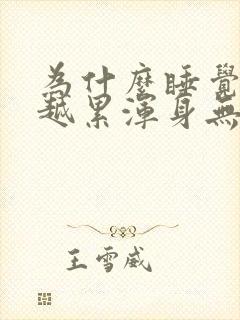 為什麼睡覺
越累渾身無
王雪威